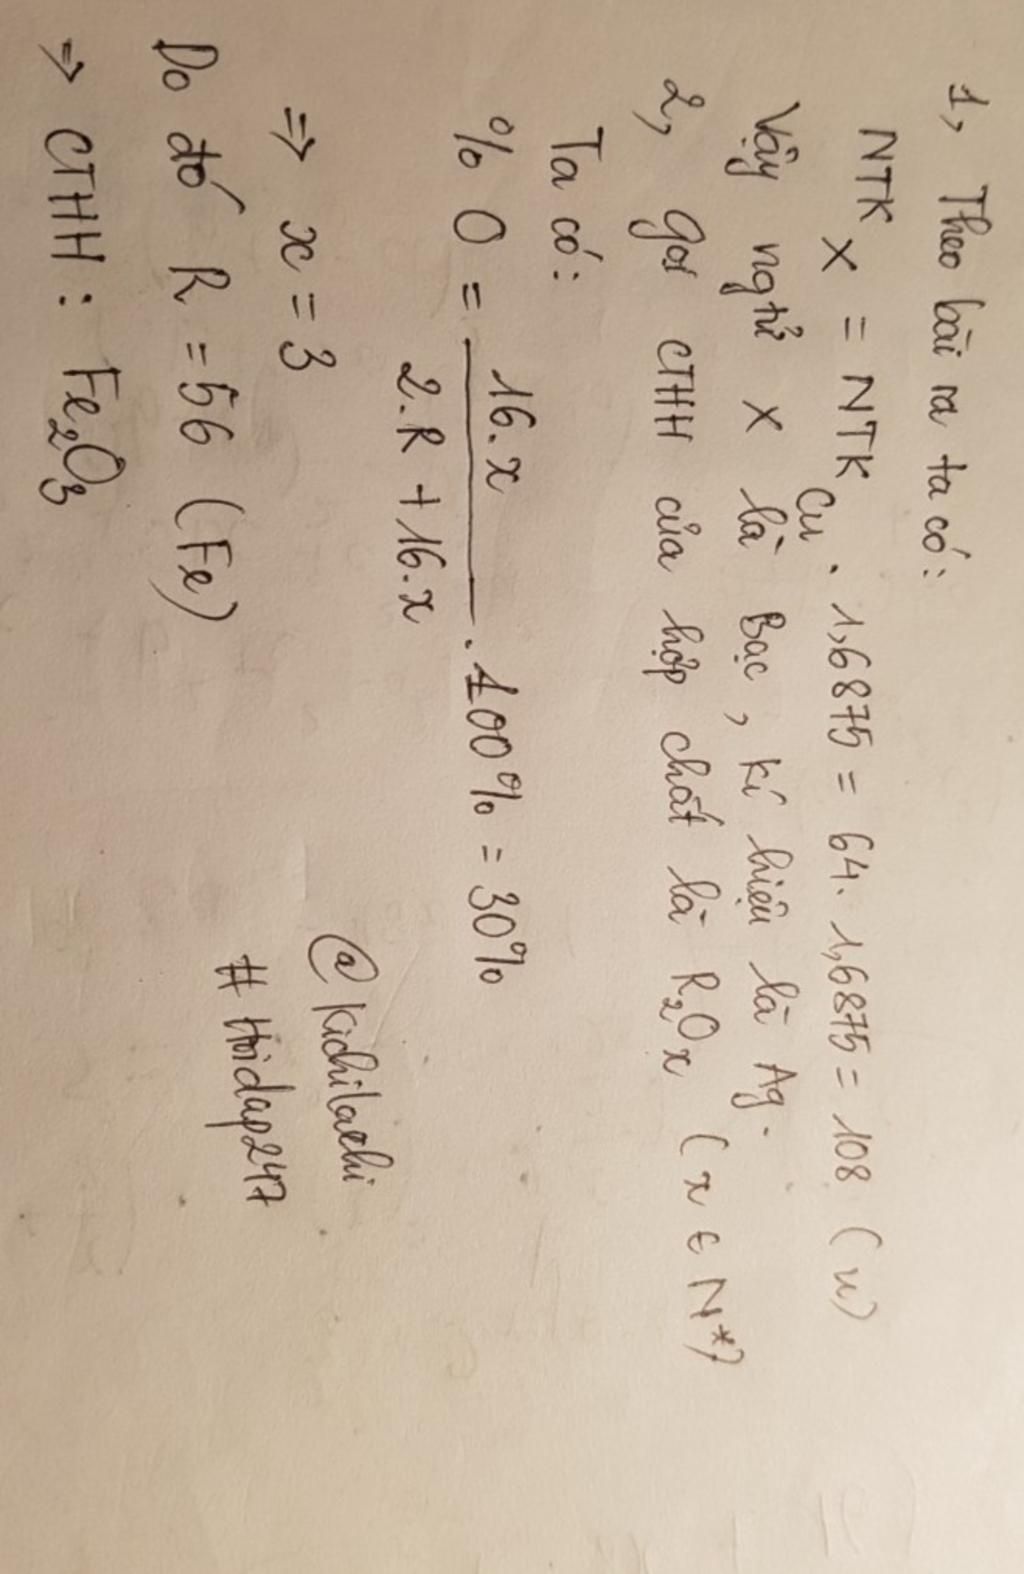 1, Theo bài ra ta có:
NTK X = NTK Cu . 1,6875 = 64. 1,6875 = 108 (u)
Vậy ngtử X là Bạc, kí hiệu là Ag.
2, Gọi CTHH của hợp chất là R2Ox (x ∈ N*)
Ta có:
% O = 16.x / 2.R + 16.x . 100% = 30%
⇒ x = 3
Do đó R = 56 (Fe)
⇒ CTHH : Fe2O3
@Kichilachi
# Hoidap247